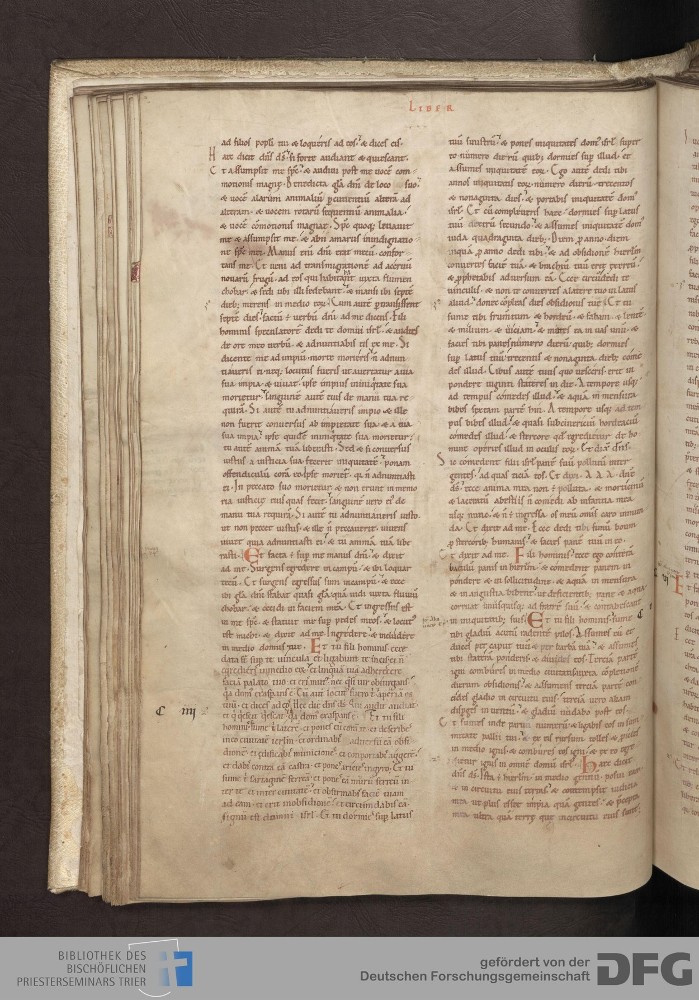 LIBER
ad filios popli tui & loqueris ad eos & dices eis
Hęc dicit dns ds si forte audiant & quiescant.
Et assumpsit me sps & audivi post me vocē com
motionis magnę. Benedicta glā dni de loco suo
& vocē alarum animaliū pcutientiū alterā ad
alteram & vocem rotarū sequentiū animalia
& vocē cōmotionis magnae. Sps quoq; levavit
me & assumpsit me & abii amarus in indignatio
ne sps mei. Manus eni dni erat mecū confor
tans me. Et veni ad transmigrationē ad acervū
novarū frugū ad eos qui habitabant iuxta flumen
chobar & sedi ubi illi sedebant & mansi ibi septē
dieb; merens in medio eoꝝ. Cum autē ptransissent
septē dies factū ē verbū dni ad me dicens. Fili
hominis speculatorē dedi te domui isrl & audies
de ore meo verbū & adnuntiabis eis ex me. Si
dicente me ad impiū morte morieris n adnun
tiaveris ei neq; locutus fueris ut avertatur a via
sua impia & vivat ipse impius in iniquitate sua
morietur. sanguinē autē eius de manu tua re
quirā. Si autē tu adnuntiaveris impio & ille
non fuerit conversus ab impietate sua & a via
sua impia ipse quidē in iniquitate sua morietur
tu autē animā tuā liberasti. Sed & si conversus
iustus a iusticia sua fecerit iniquitatē ponam
offendiculū corā eo ipse morietˀ. qa n adnuntiasti
ei. In peccato suo morietur & non erunt in memo
ria iusticię eius quas fecit sanguinē vero eiˀ de
manu tua requirā. Si autē tu adnuntiaveris iusto
ut non peccet iustus & ille n peccaverit vivens
vivet quia adnuntiasti ei & tu animā tuā libe
rasti. Et facta ē sup me manus dni & dixit
ad me. Surgens egredere in campū & ibi loquar
tecū. Et surgens egressus sum in campū & ecce
ibi glā dni stabat quasi glā quā vidi iuxta fluviū
chobar & cecidi in faciem meā. Et ingressus est
in me sps & statuit me sup pedes meos & locutˀ
est michi & dixit ad me. Ingredere & includere
in medio domus tue. Et tu fili hominis ecce
data st sup te vincula et ligabunt te in eis et n
egredieris in medio eoꝝ et linguā tuā adherescere
faciā palato tuo et eris mutˀ nec qsi vir obiurgans
qa domˀ exasperans ē. Cū aut locutˀ fuero t aperiā os
tuū et dices ad eos hec dic dns ds Qui audit audiat
et q quiescit quiescat qa domˀ exasperans ē. Et tu fili
C IIII
hominis sume t laterē et pones eū corā te et describes
in eo civitatē ierlm et ordinabis adversū eā obsi
dionē et edificabis municiones et conportabis aggerē
et dabis contra eā castra et pones arietes in gyro. Et tu
sume t sartaginē ferreā et pones eā murū ferreū in
ter te et inter civitatē et obfirmabis faciē tuam
ad eam et erit in obsidionē et circumdabis eā
signū est domui isrl. Et tu dormies sup latus
tuū sinistrū & pones iniquitates domˀ isrl super
eo numero dierū quib; dormies sup illud et
assumes iniquitatē eoꝝ. Ego autē dedi tibi
annos iniquitatis eoꝝ numero dierū trecentos
& nonaginta dies & portabis iniquitatē domˀ
isrl. Et cū compleveris haec dormies sup latus
tuū dextrū secundo & assumes iniquitatē domˀ
iuda quadraginta dieb; Diem p anno diem
inquā p anno dedi tibi & ad obsidionē hierlm
convertes faciē tuā & brachiū tuū erit extentū
& pphetabis adversus eā. Ecce circūdedi te
vinculis & non te convertes a latere tuo in latus
aliud donec cōpleas dies obsidionis tuę. Et tu
sume tibi frumentum & hordeū & fabam & lentē
& milium & viciam & mittes ea in vas unū &
facies tibi panes numero dierū quib; dormies
sup latus tuū trecentis & nonaginta dieb; come
des illud. Cibus autē tuus quo vesceris erit in
pondere viginti stateres in die. A tempore usq;
ad tempus comedes illud & aquā in mensura
bibes sextam partē hin. A tempore usq; ad tem
pus bibes illud & quasi subcinericiū hordeaciū
comedes illud & stercore qd egreditur de ho
mine operies illud in oculis eoꝝ. Et dixit dns.
Sic comedent filii isrl panē suū pollutū inter
gentes ad quas eiciā eos. Et dixi A A A dne
ds ecce anima mea non ē polluta & morticinū
& laceratū a bestiis n comedi ab infantia mea
usq; nunc & n ē ingressa os meū omis caro inmun
da. Et dixit ad me. Ecce dedi tibi fimū boum
p stercorib; humanis & facies panē tuū in eo.
Et dixit ad me. Fili hominis ecce ego conterā
baculū panis in hierlm & comedent panem in
pondere & in sollicitudine & aquā in mensura
& in angustia bibent ut deficientib; pane & aqua
corruat unusquisq; ad fratrē suū & contabescant
in iniquitatib; suis. Et tu fili hominis sume C V
tibi gladiū acutū radentē pilos. Assumes eū et
duces per caput tuū & per barbā tuā & assumes
tibi staterā ponderis & divides eos. Terciā partē
igni combures in medio civitatis iuxta cōpletionē
dierum obsidionis & assumens terciā parte con
cides gladio in circuitu eius terciā vero aliam
disperges in ventū & gladiū nudabo post eos.
Et sumes inde parvū numerū & ligabis eos in sum
mitate pallii tui & ex eis rursum tolles & proicies
in medio ignis & combures eos igni & ex eo egre
dietur ignis in omnē domū isrl. Haec dicit
dns ds. Ista ē hierlm in medio gentiū posui eam
& in circuitu eius terras & contempsit iudicia
mea ut plus esset impia quā gentes & precepta
mea ultra quā terrę que in circuitu eius sunt.
BIBLIOTHEK DES
BISCHÖFLICHEN
PRIESTERSEMINARS TRIER
gefördert von der
Deutschen Forschungsgemeinschaft
DFG